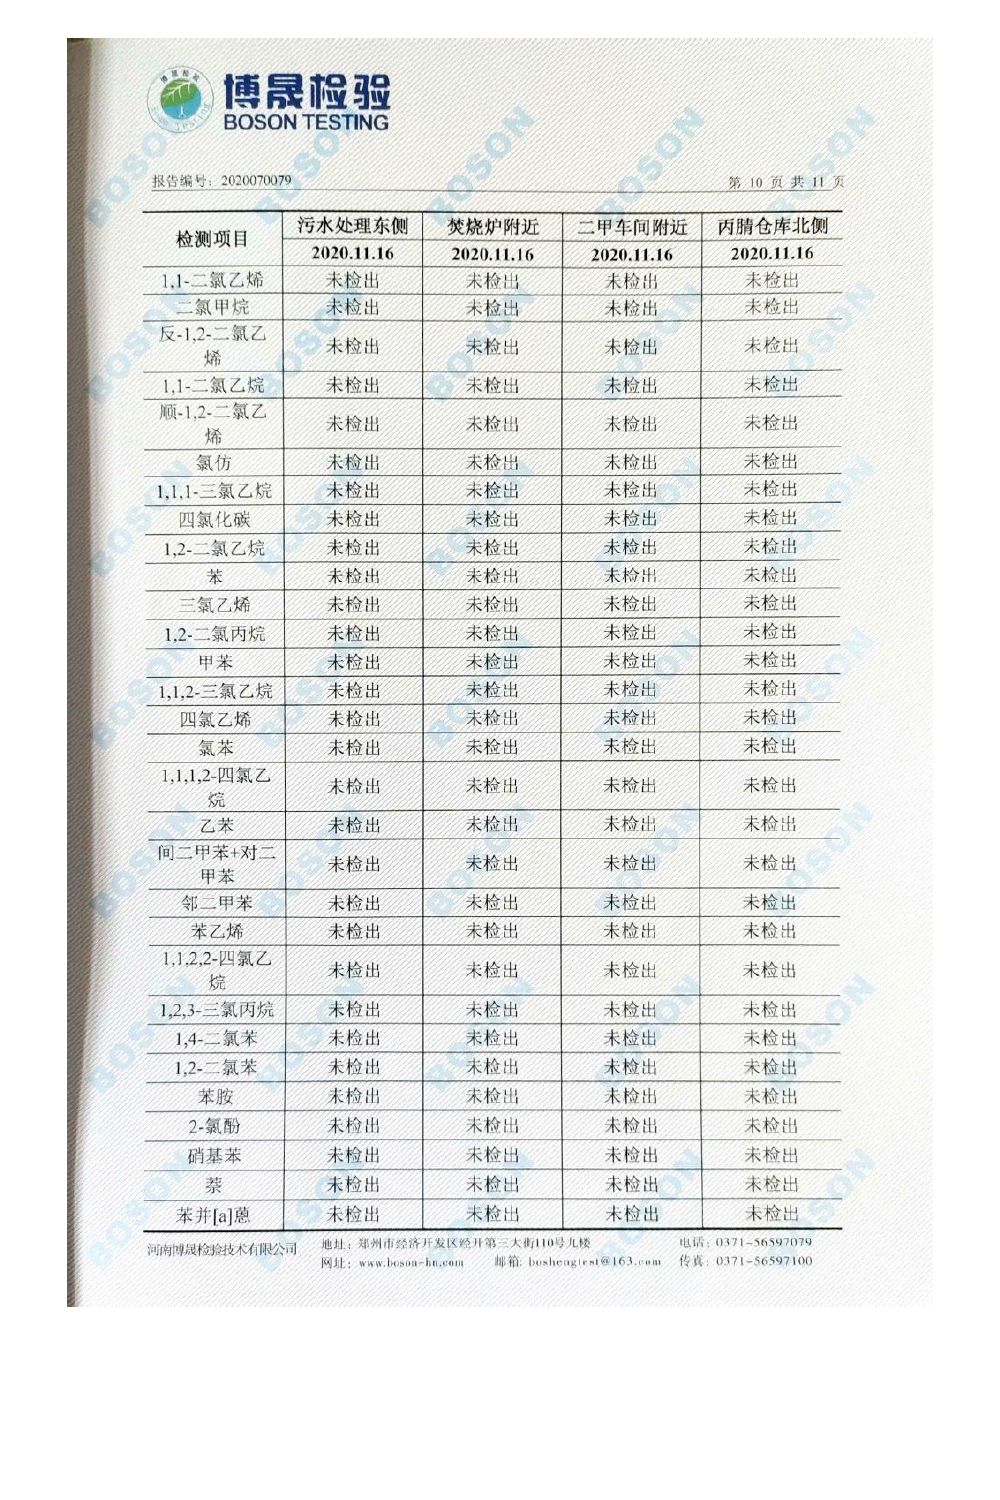 博晟检验
BOSON TESTING
报告编号：2020070079 第 10 页 共 11 页
检测项目 污水处理东侧 焚烧炉附近 二甲车间附近 丙腈仓库北侧
2020.11.16 2020.11.16 2020.11.16 2020.11.16
1,1-二氯乙烯 未检出 未检出 未检出 未检出
二氯甲烷 未检出 未检出 未检出 未检出
反-1,2-二氯乙
烯 未检出 未检出 未检出 未检出
1,1-二氯乙烷 未检出 未检出 未检出 未检出
顺-1,2-二氯乙
烯 未检出 未检出 未检出 未检出
氯仿 未检出 未检出 未检出 未检出
1,1,1-三氯乙烷 未检出 未检出 未检出 未检出
四氯化碳 未检出 未检出 未检出 未检出
1,2-二氯乙烷 未检出 未检出 未检出 未检出
苯 未检出 未检出 未检出 未检出
三氯乙烯 未检出 未检出 未检出 未检出
1,2-二氯丙烷 未检出 未检出 未检出 未检出
甲苯 未检出 未检出 未检出 未检出
1,1,2-三氯乙烷 未检出 未检出 未检出 未检出
四氯乙烯 未检出 未检出 未检出 未检出
氯苯 未检出 未检出 未检出 未检出
1,1,1,2-四氯乙
烷 未检出 未检出 未检出 未检出
乙苯 未检出 未检出 未检出 未检出
间二甲苯+对二
甲苯 未检出 未检出 未检出 未检出
邻二甲苯 未检出 未检出 未检出 未检出
苯乙烯 未检出 未检出 未检出 未检出
1,1,2,2-四氯乙
烷 未检出 未检出 未检出 未检出
1,2,3-三氯丙烷 未检出 未检出 未检出 未检出
1,4-二氯苯 未检出 未检出 未检出 未检出
1,2-二氯苯 未检出 未检出 未检出 未检出
苯胺 未检出 未检出 未检出 未检出
2-氯酚 未检出 未检出 未检出 未检出
硝基苯 未检出 未检出 未检出 未检出
萘 未检出 未检出 未检出 未检出
苯并[a]蒽 未检出 未检出 未检出 未检出
河南博晟检验技术有限公司 地址：郑州市经济开发区经开第三大街110号九楼 电话：0371-56597079
网址：www.boson-hn.com 邮箱: boshengtest@163.com 传真：0371-56597100